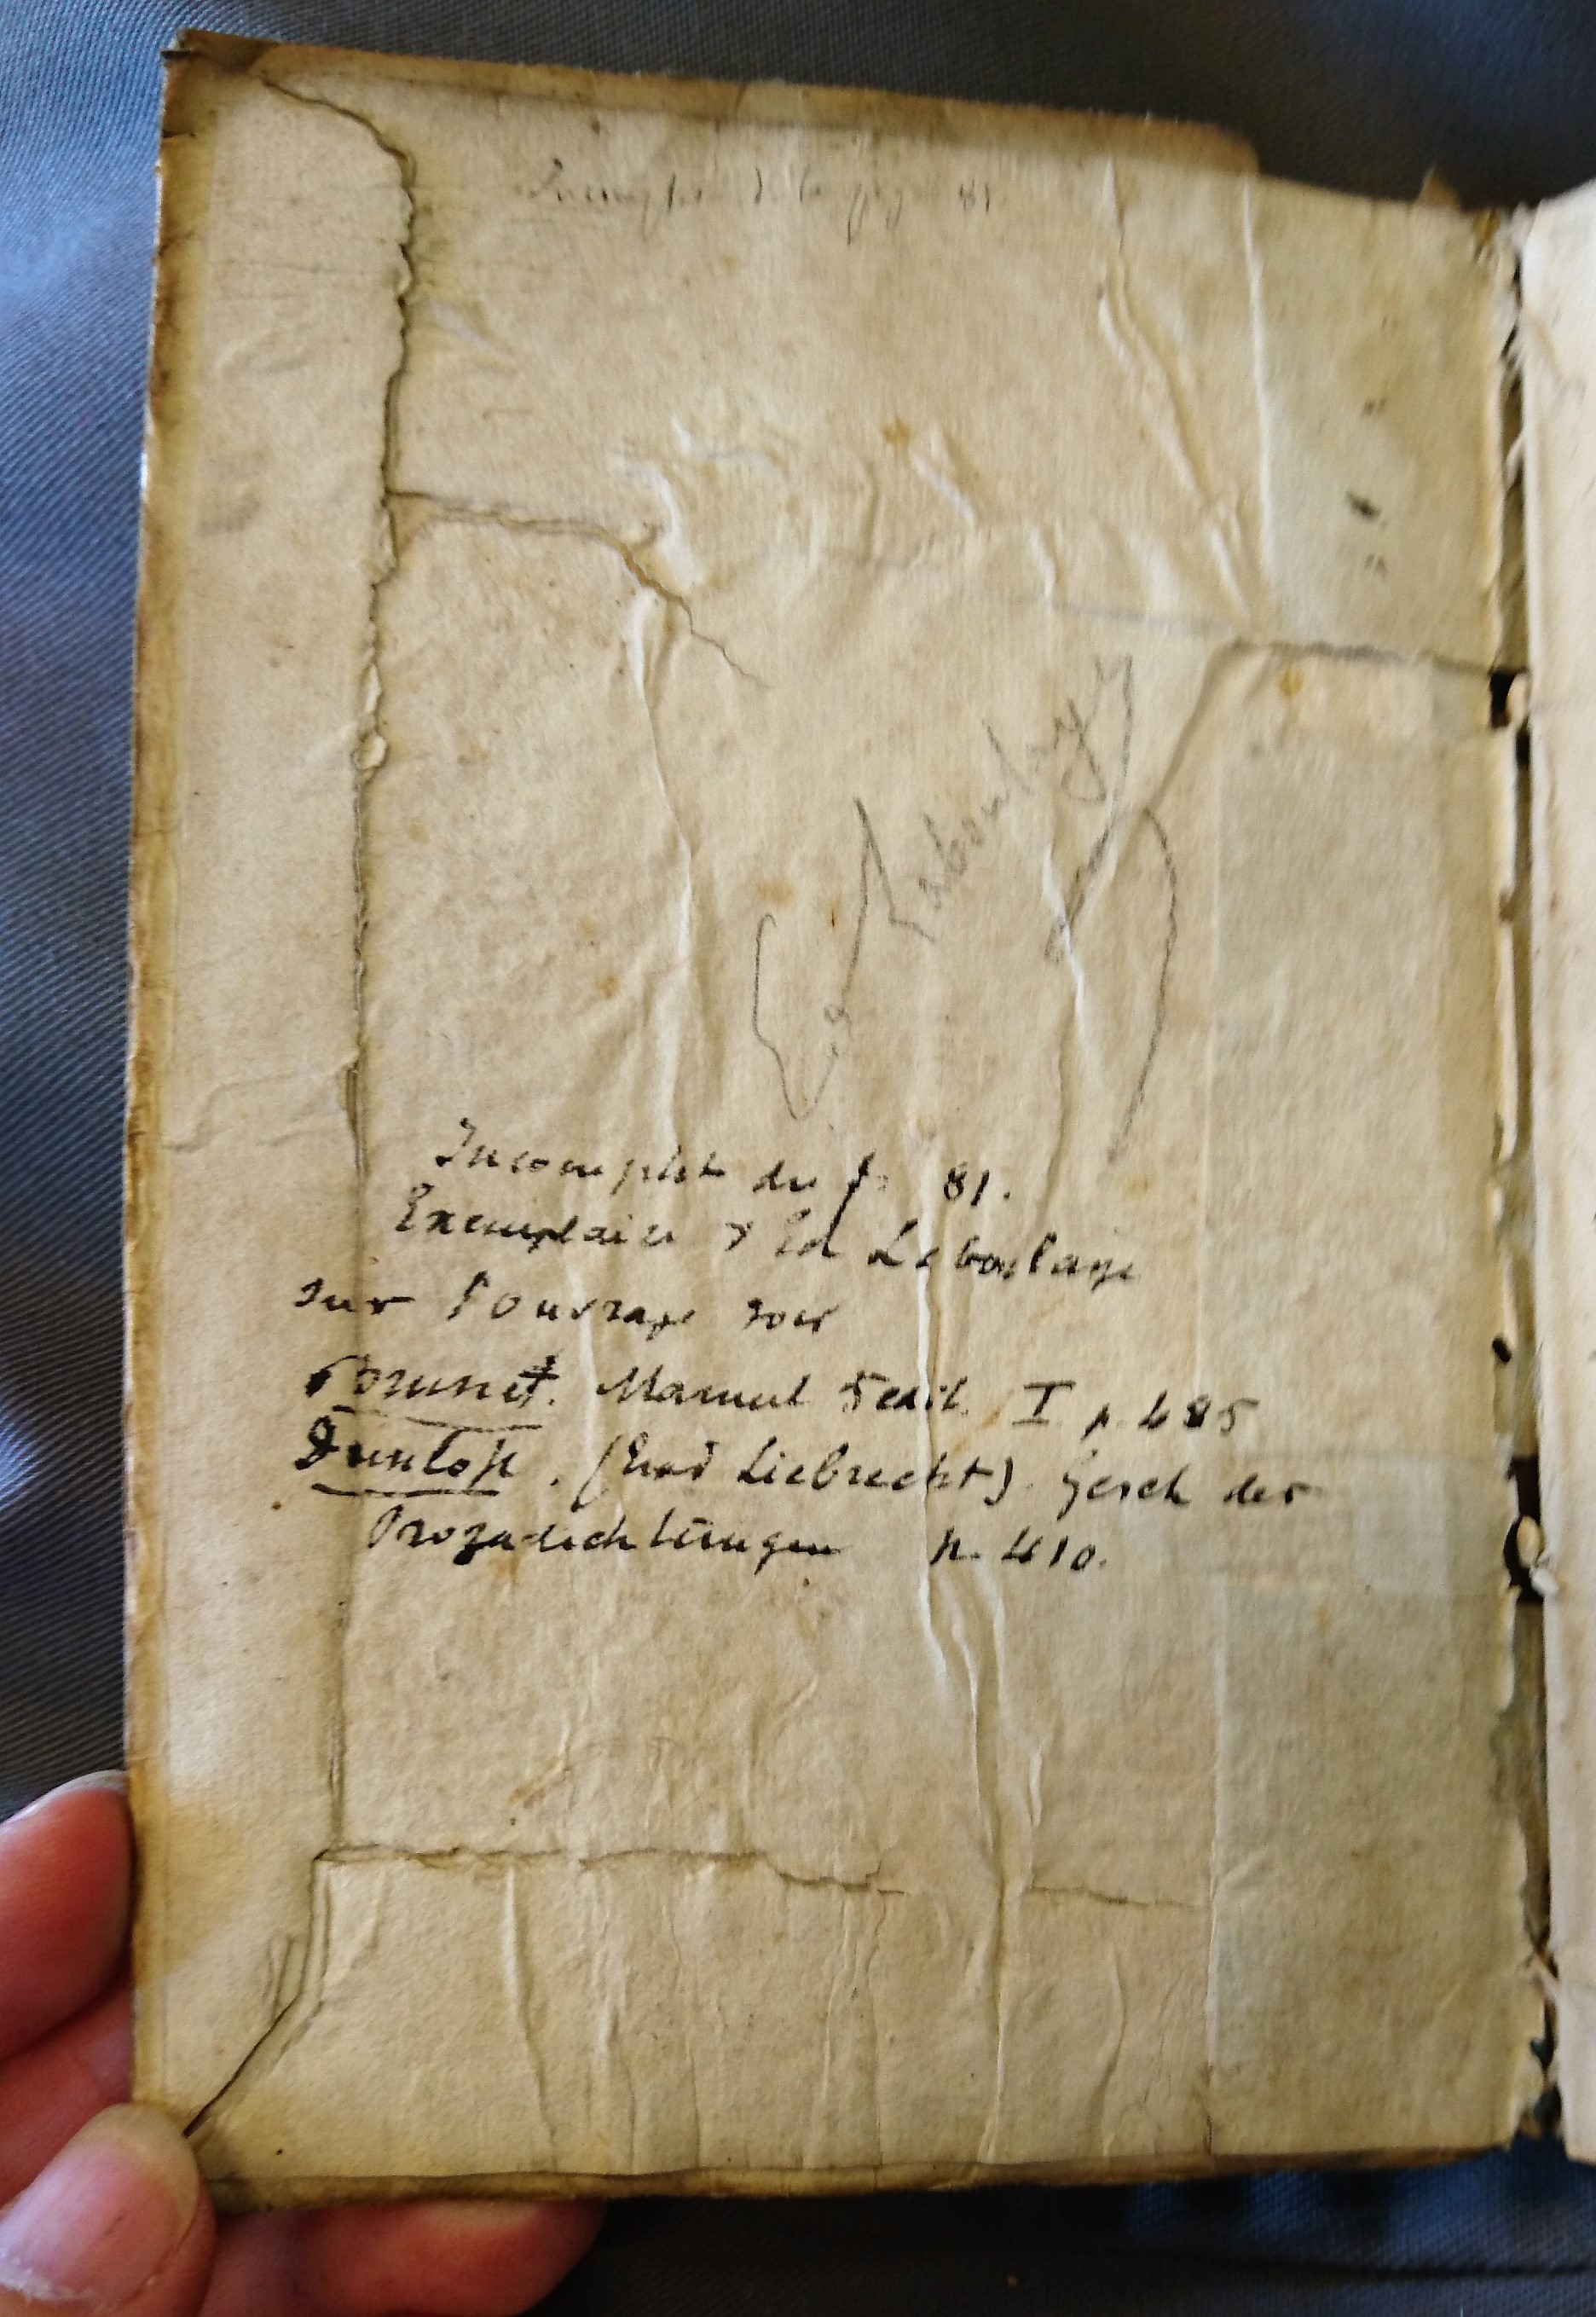 Incomplet de la page 81
Laboulaye
Incomplet du p. 81.
Exemplaire d Ed Laboulaye
sur l'ouvrage voir
Brunet. Manuel 5 edit. I p. 485
Dunlop. (trad Liebrecht). Gesch der
Prozadichtungen p. 410.